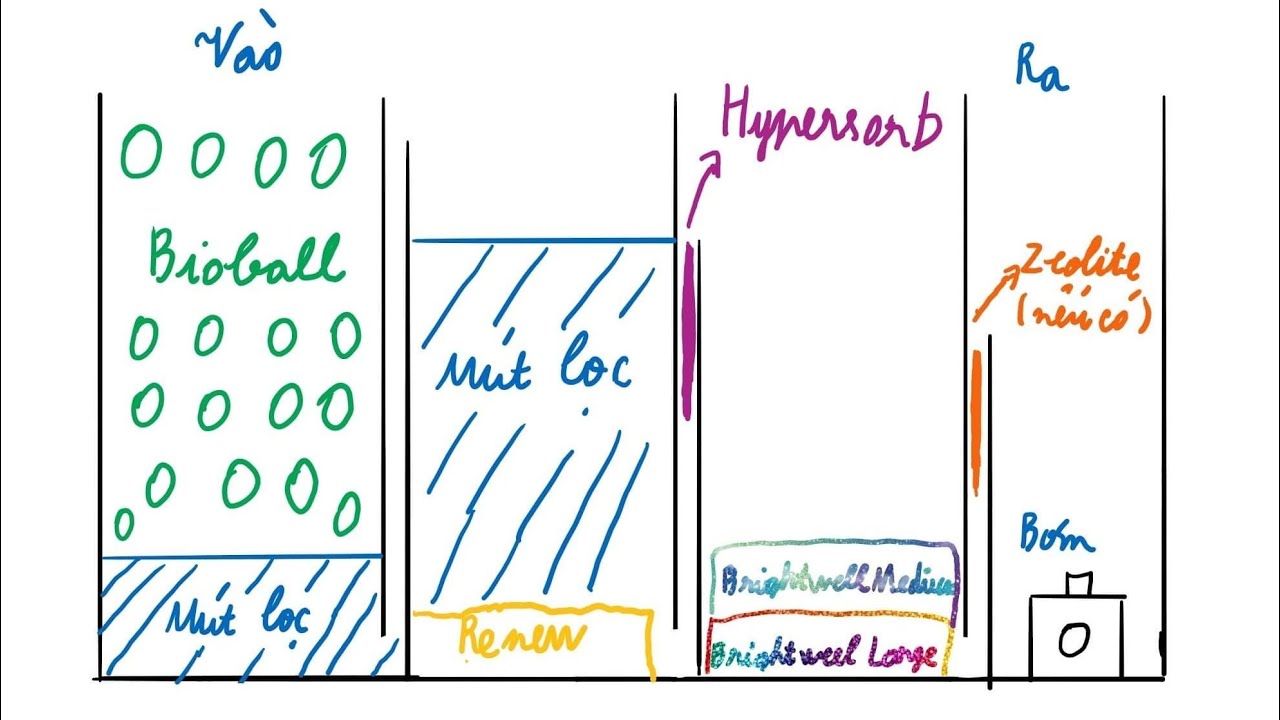 Vào
Ra
Hypersorb
Bioball
Zeolite
(nếu có)
Mút lọc
Bơm
Brightwell Medium
Mút lọc
Renew
Brightweel Large